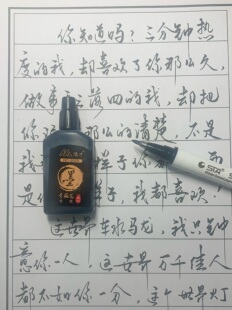 你知道吗？三分钟热
度的我，却喜欢了你那么久，
做事丢三落四的我，却把
你 那么的清楚，不是
我 样子你
是你 样子，我都喜欢！
墨
这世界车水马龙，我只钟
意你一人，这世界万千佳人
都不如你一分，这个世界灯